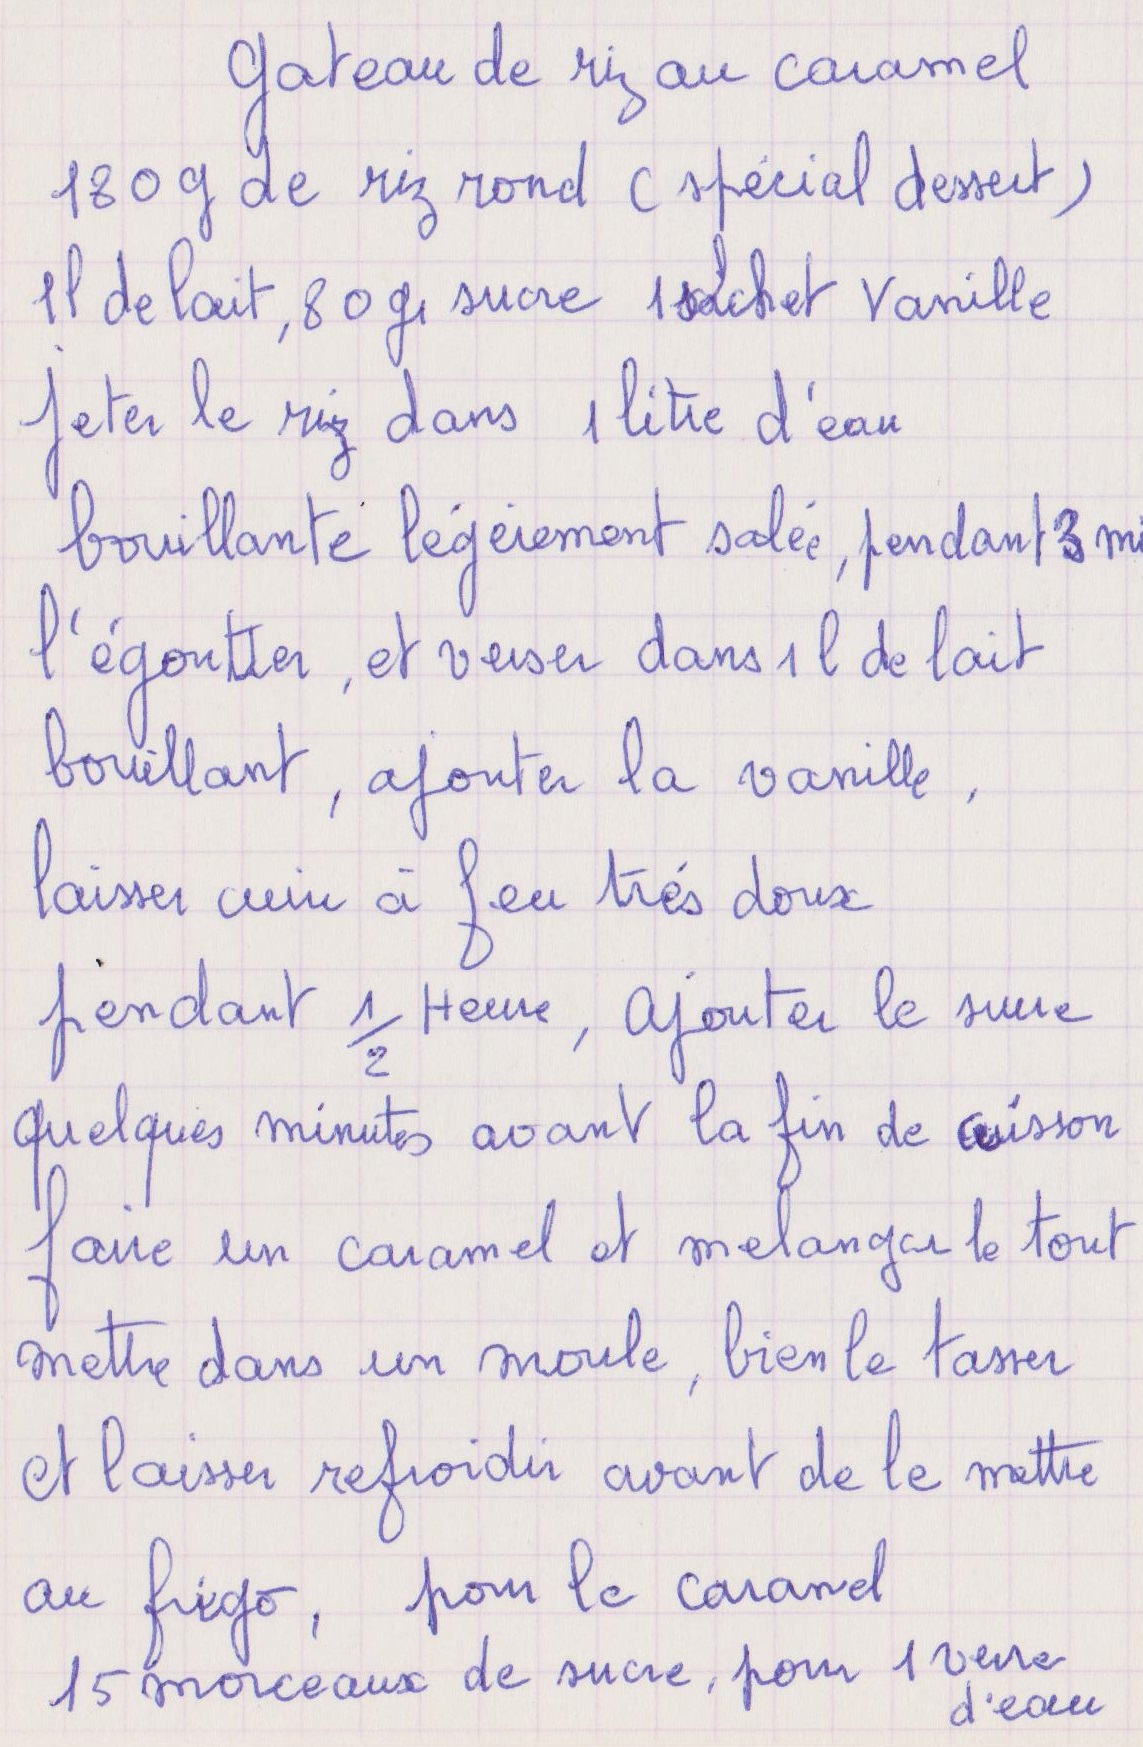 Gateau de riz au caramel
180g de riz rond (spécial dessert)
1l de lait, 80g, sucre 1 sachet Vanille
jeter le riz dans 1 litre d'eau
bouillante légèrement salée, pendant 3 mi
l'égoutter, et verser dans 1l de lait
bouillant, ajouter la vanille,
laisser cuire à feu trés doux
pendant 1/2 Heure, ajouter le sucre
quelques minutes avant la fin de cuisson
faire un caramel et melanger le tout
mettre dans un moule, bien le tasser
et laisser refroidir avant de le mettre
au frigo, pour le caramel
15 morceaux de sucre, pour 1 verre
d'eau